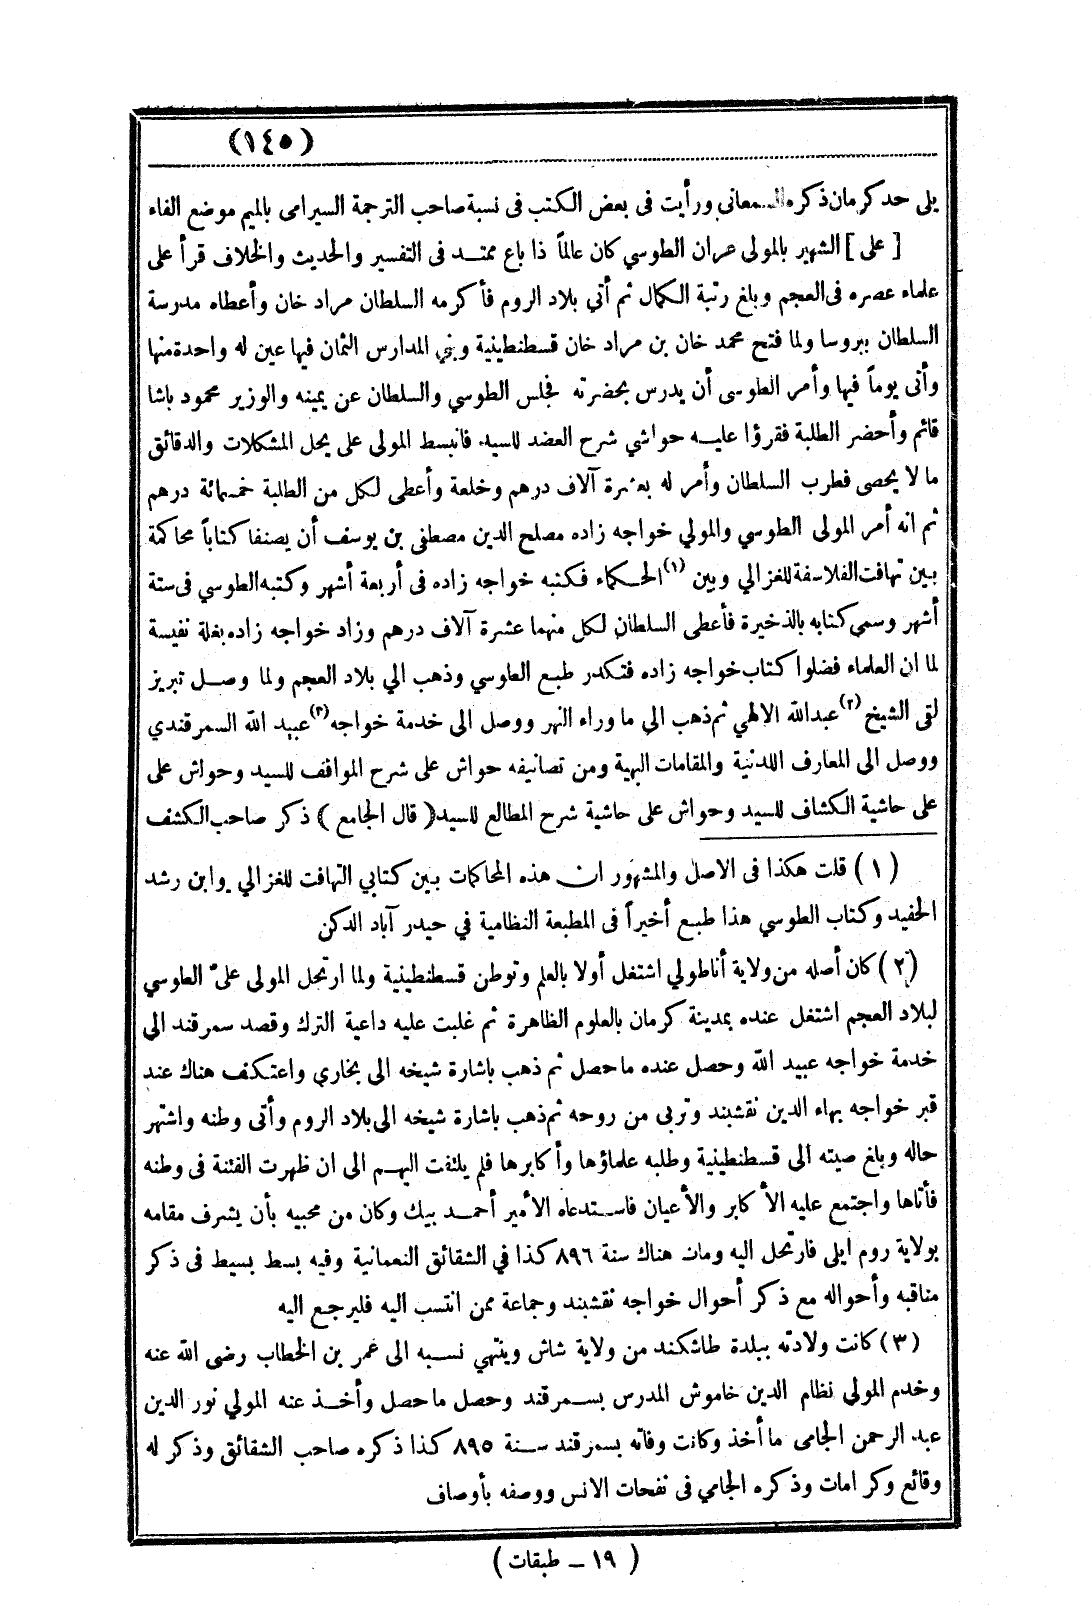 (١٤٥)
يلى حد كرمان ذكره السمعانى ورأيت فى بعض الكتب فى نسبة صاحب الترجمة السيرامى بالميم موضع الفاء
[ على ] الشهير بالمولى عران الطوسي كان عالماً ذا باع ممتد فى التفسير والحديث والخلاف قرأ على
علماء عصره فى العجم وبلغ رتبة الكمال ثم أتي بلاد الروم فأكرمه السلطان مراد خان وأعطاه مدرسة
السلطان ببروسا ولما فتح محمد خان بن مراد خان قسطنطينية وبني المدارس الثمان فيها عين له واحدة منها
وأتى يوماً فيها وأمر الطوسى أن يدرس بحضرته فجلس الطوسي والسلطان عن يمينه والوزير محمود باشا
قائم وأحضر الطلبة فقرؤا عليه حواشي شرح العضد للسيد فانبسط المولى على يحل المشكلات والدقائق
ما لا يحصى فطرب السلطان وأمر له بعشرة آلاف درهم وخلعة وأعطى لكل من الطلبة خمسمائة درهم
ثم انه أمر المولى الطوسي والمولي خواجه زاده مصلح الدين مصطفى بن يوسف أن يصنفا كتاباً محاكمة
بين تهافت الفلاسفة للغزالي وبين (١) الحكماء فكتبه خواجه زاده فى أربعة أشهر وكتبه الطوسي فى ستة
أشهر وسمى كتابه بالذخيرة فأعطى السلطان لكل منهما عشرة آلاف درهم وزاد خواجه زاده بغلة نفيسة
لما ان العلماء فضلوا كتاب خواجه زاده فتكدر طبع الطوسي وذهب الي بلاد العجم ولما وصل تبريز
لقى الشيخ (٢) عبدالله الالهي ثم ذهب الي ما وراء النهر ووصل الى خدمة خواجه (٣) عبيد الله السمرقندي
ووصل الى المعارف اللدنية والمقامات البهية ومن تصانيفه حواش على شرح المواقف للسيد وحواش على
على حاشية الكشاف للسيد وحواش على حاشية شرح المطالع للسيد ( قال الجامع ) ذكر صاحب الكشف
(١) قلت هكذا فى الاصل والمشهور ان هذه المحاكمات بين كتابي التهافت للغزالي وابن رشد
الحفيد وكتاب الطوسي هذا طبع أخيراً فى المطبعة النظامية في حيدر آباد الدكن
(٢) كان أصله من ولاية أناطولي اشتغل أولا بالعلم وتوطن قسطنطينية ولما ارتحل المولى علي الطوسي
لبلاد العجم اشتغل عنده بمدينة كرمان بالعلوم الظاهرة ثم غلبت عليه داعية الترك وقصد سمرقند الى
خدمة خواجه عبيد الله وحصل عنده ماحصل ثم ذهب باشارة شيخه الى بخاري واعتكف هناك عند
قبر خواجه بهاء الدين نقشبند وتربى من روحه ثم ذهب باشارة شيخه الى بلاد الروم وأتى وطنه واشتهر
حاله وبلغ صيته الى قسطنطينية وطلبه علماؤها وأكابرها فلم يلتفت اليهم الى ان ظهرت الفتنة فى وطنه
فأتاها واجتمع عليه الأكابر والأعيان فاستدعاه الأمير أحمد بيك وكان من محبيه بأن يشرف مقامه
بولاية روم ايلى فارتحل اليه ومات هناك سنة ٨٩٦ كذا في الشقائق النعمانية وفيه بسط بسيط فى ذكر
مناقبه وأحواله مع ذكر أحوال خواجه نقشبند وجماعة ممن انتسب اليه فليرجع اليه
(٣) كانت ولادته ببلدة طاشكند من ولاية شاش وينتهي نسبه الى عمر بن الخطاب رضى الله عنه
وخدم المولى نظام الدين خاموش المدرس بسمرقند وحصل ماحصل وأخذ عنه المولي نور الدين
عبد الرحمن الجامى ما أخذ وكانت وفاته بسمرقند سنة ٨٩٥ كذا ذكره صاحب الشقائق وذكر له
وقائع وكرامات وذكره الجامي فى نفحات الانس ووصفه بأوصاف
( ١٩ ــ طبقات )